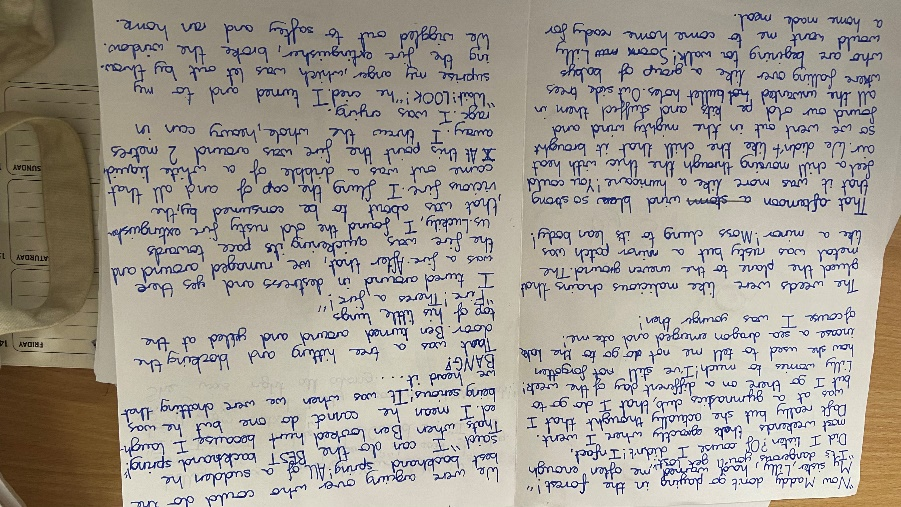 "Now Maddy don't go playing in the forest!"
My sister, Lilly, had warned me, often enough
"Its dangerous, you'll get lost."
Did I listen? Of couse I didn't! I fact,
most weekends exactly where I went.
Daft really but she actually thought that I
was at a gymnastics club, that I do go to
but I go there on a different day of the week!
Lilly worries to much! I've still not forgotten
how she used to tell me not to go to the lake
incase a sea dragon emerged and ate me.
ofcause I was younger then!
The weeds were like malicious chains that
glued the plane to the uneven ground. The
metal was rusty but a minor patch was
like a mirror! Moss clung to its lean body!
That afternoon a storm wind blew so strong
that it was more like a huricane! You could
feel a chill moving through the thick with heat
air. We didn't like the chill that it brought
so we went out in the mighty wind and
found our old pe kits and stuffed them in
all the unwanted bullet holes. Out side trees
where falling over like a group of babys
who are begining to walk! Soon Lilly
would want me to come home ready for
a home made meal.
We were arguing over who could do the
best backhand spring! ALL of a sudden he
said "I can do the BEST backhand spring!"
Thats when Ben looked hurt because I laugh-
ed. I mean he cannot do one but he was
being serious! It was when we were chatting that
we heard it....
BANG!
That was a tree hitting and blocking the
door. Ben turned around and yelled at the
top of his little lungs
"Fire! Theres a fire!"
I turned around in distress and yes there
was a fire. After that, we rumaged around and
the fire was quickening its pace towards
us. Luckily, I found the old rusty fire extinguisher
that was about to be consumed by the,
vicious fire. I flung the cap of and all that
came out was a dribble of a white liquid
At this point the fire was around 2 metres
away. I threw the whole, heavy can in
rage. I was crying.
"What! LOOK!" he cried I turned and to my
suprise my anger, which was let out by throw-
ing the fire extinguisher, broke the window.
We wiggled out to saftey and ran home.
SUNDAY
SATURDAY
FRIDAY
14